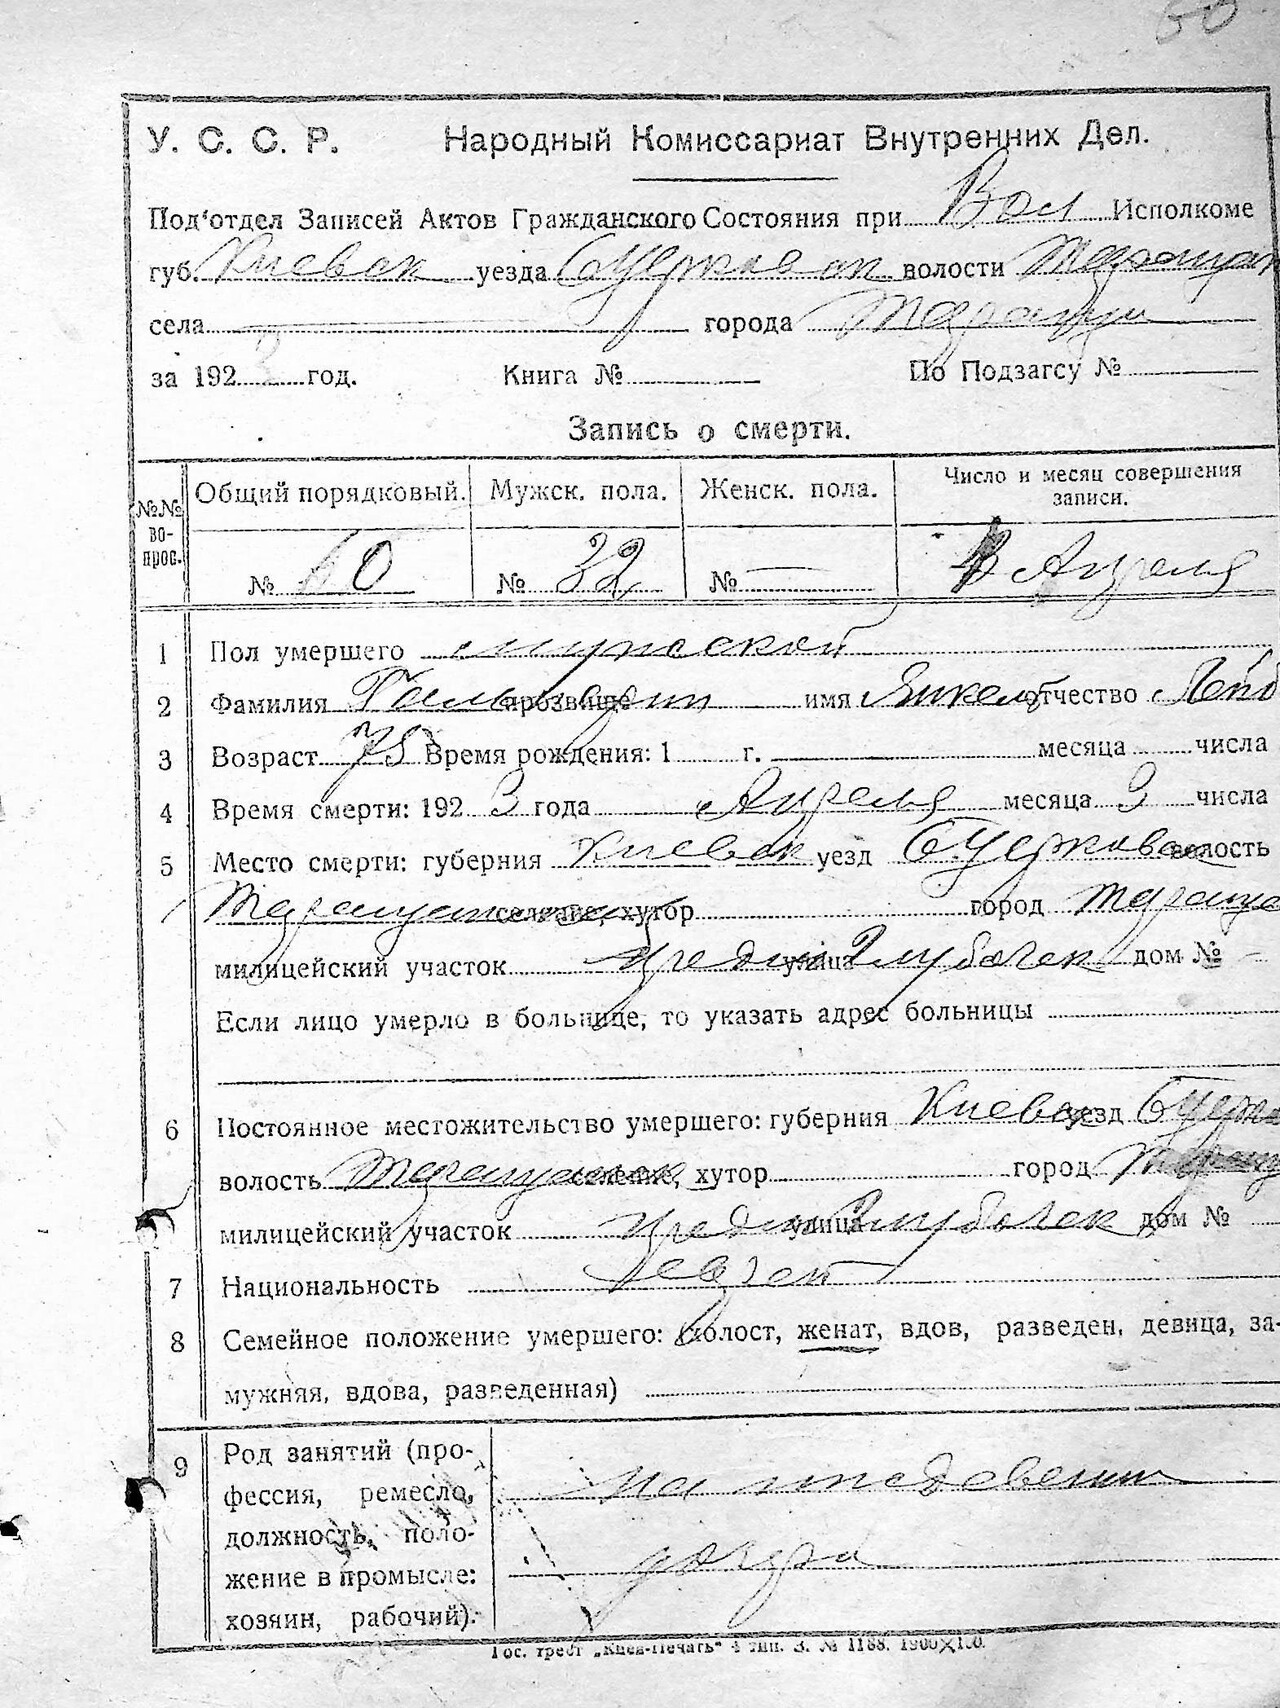 60
У. С. С. Р. Народный Комиссариат Внутренних Дел.
Под‘отдел Записей Актов Гражданского Состояния при Вол Исполкоме
губ. Киевск уезда БЦерковск волости Таращан
села города Тараща
за 1923 год. Книга № По Подзагсу №
Запись о смерти.
№№ вопрос. Общий порядковый. Мужск. пола. Женск. пола. Число и месяц совершения записи.
№ 60 № 32 № — Апреля
1 Пол умершего мужской
2 Фамилия прозвище имя Янкель отчество Лейб
3 Возраст 75 Время рождения: 1 г. месяца числа
4 Время смерти: 1923 года Апреля месяца 3 числа
5 Место смерти: губерния Киевск уезд БЦерковск волость
Таращанская селение, хутор город Тараща
милицейский участок улица дом № —
Если лицо умерло в больнице, то указать адрес больницы
6 Постоянное местожительство умершего: губерния Киевск уезд БЦерк
волость Таращанск селение, хутор город Тараща
милицейский участок улица дом №
7 Национальность еврей
8 Семейное положение умершего: (холост, женат, вдов, разведен, девица, за-
мужняя, вдова, разведенная)
9 Род занятий (про-
фессия, ремесло, на иждевении
должность, поло-
жение в промысле:
хозяин, рабочий).
Гос. трест „Киев-Печать“ 4 тип. З. № 1188. 1900×100.